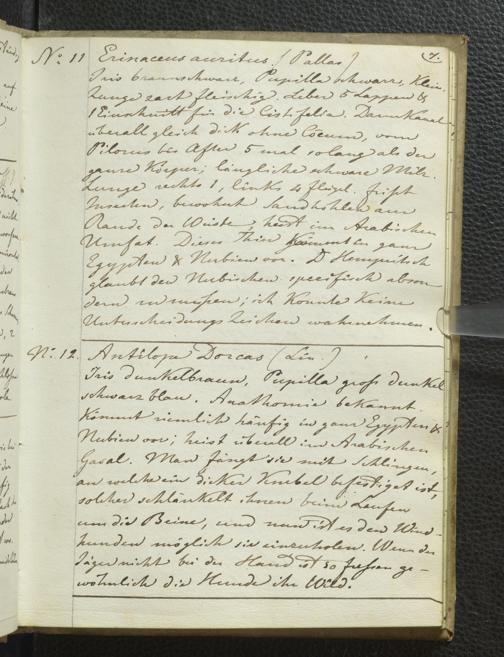 7.
No. 11 Erinaceus auritus (Pallas)
Iris braunschwarz, Pupilla schwarz, Klein.
Zunge zart fleischig, Leber 5 Lappen &
1 Einschnitt für die Cistifelea. Darmkanal
überall gleich dik ohne Coecum, vom
Pilorus bis After 5 mal so lang als der
ganze Körper; längliche schwarze Milz.
Lunge rechts 1, links 4 flügl. frißt
Insecten, bewohnt Sandhöhlen am
Rande der Wüste, heist im Arabischen
Umfat. Dieses Thier kömmt in ganz
Egypten & Nubien vor. D Hemprich
glaubt den Nubischen specifisch abson
dern zu müßen; ich konnte keine
Unterscheidungs Zeichen wahrnehmen.
No. 12. Antilopa Dorcas (Lin.)
Iris dunkelbraun, Pupilla groß dunkel
schwarzblau. Anathomie bekannt.
Kömmt ziemlich häufig in ganz Egypten &
Nubien vor; heist überall im Arabischen
Gasal. Man fängt sie mit Schlingen,
an welche ein diker Knebel befestiget ist,
solcher schlänkelt ihnen beim Laufen
um die Beine, und nun ist es den Wind-
hunden möglich sie einzuholen. Wenn der
Jäger nicht bei der Hand ist so freßen ge-
wöhnlich die Hunde ihr Wild.